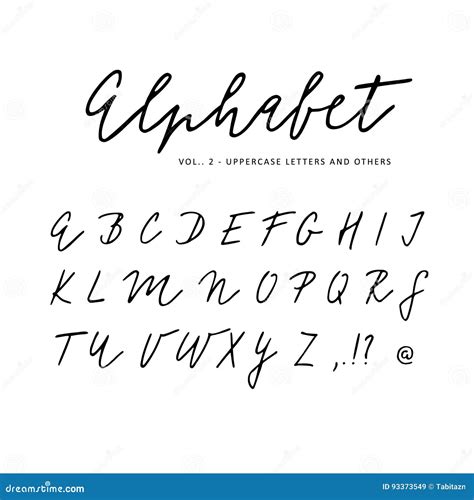 Alphabet
VOL.. 2 - UPPERCASE LETTERS AND OTHERS
A B C D E F G H I J
K L M N O P Q R S
T U V W X Y Z , . ! ? @
dreamstime.com
ID 93373549 © Tabitazn